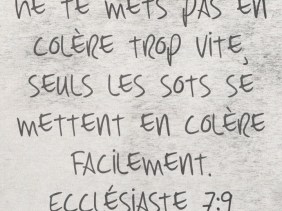 NE TE METS PAS EN
COLÈRE TROP VITE,
SEULS LES SOTS SE
METTENT EN COLÈRE
FACILEMENT.
ECCLÉSIASTE 7:9